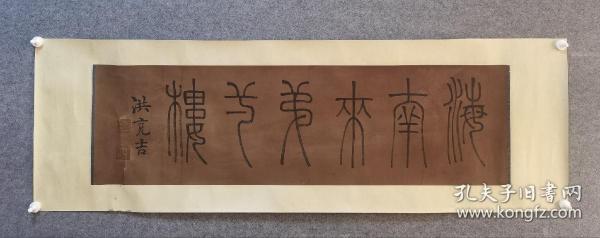 海南來弟弌樓
洪亮吉
孔夫子旧书网
www.kongfz.com